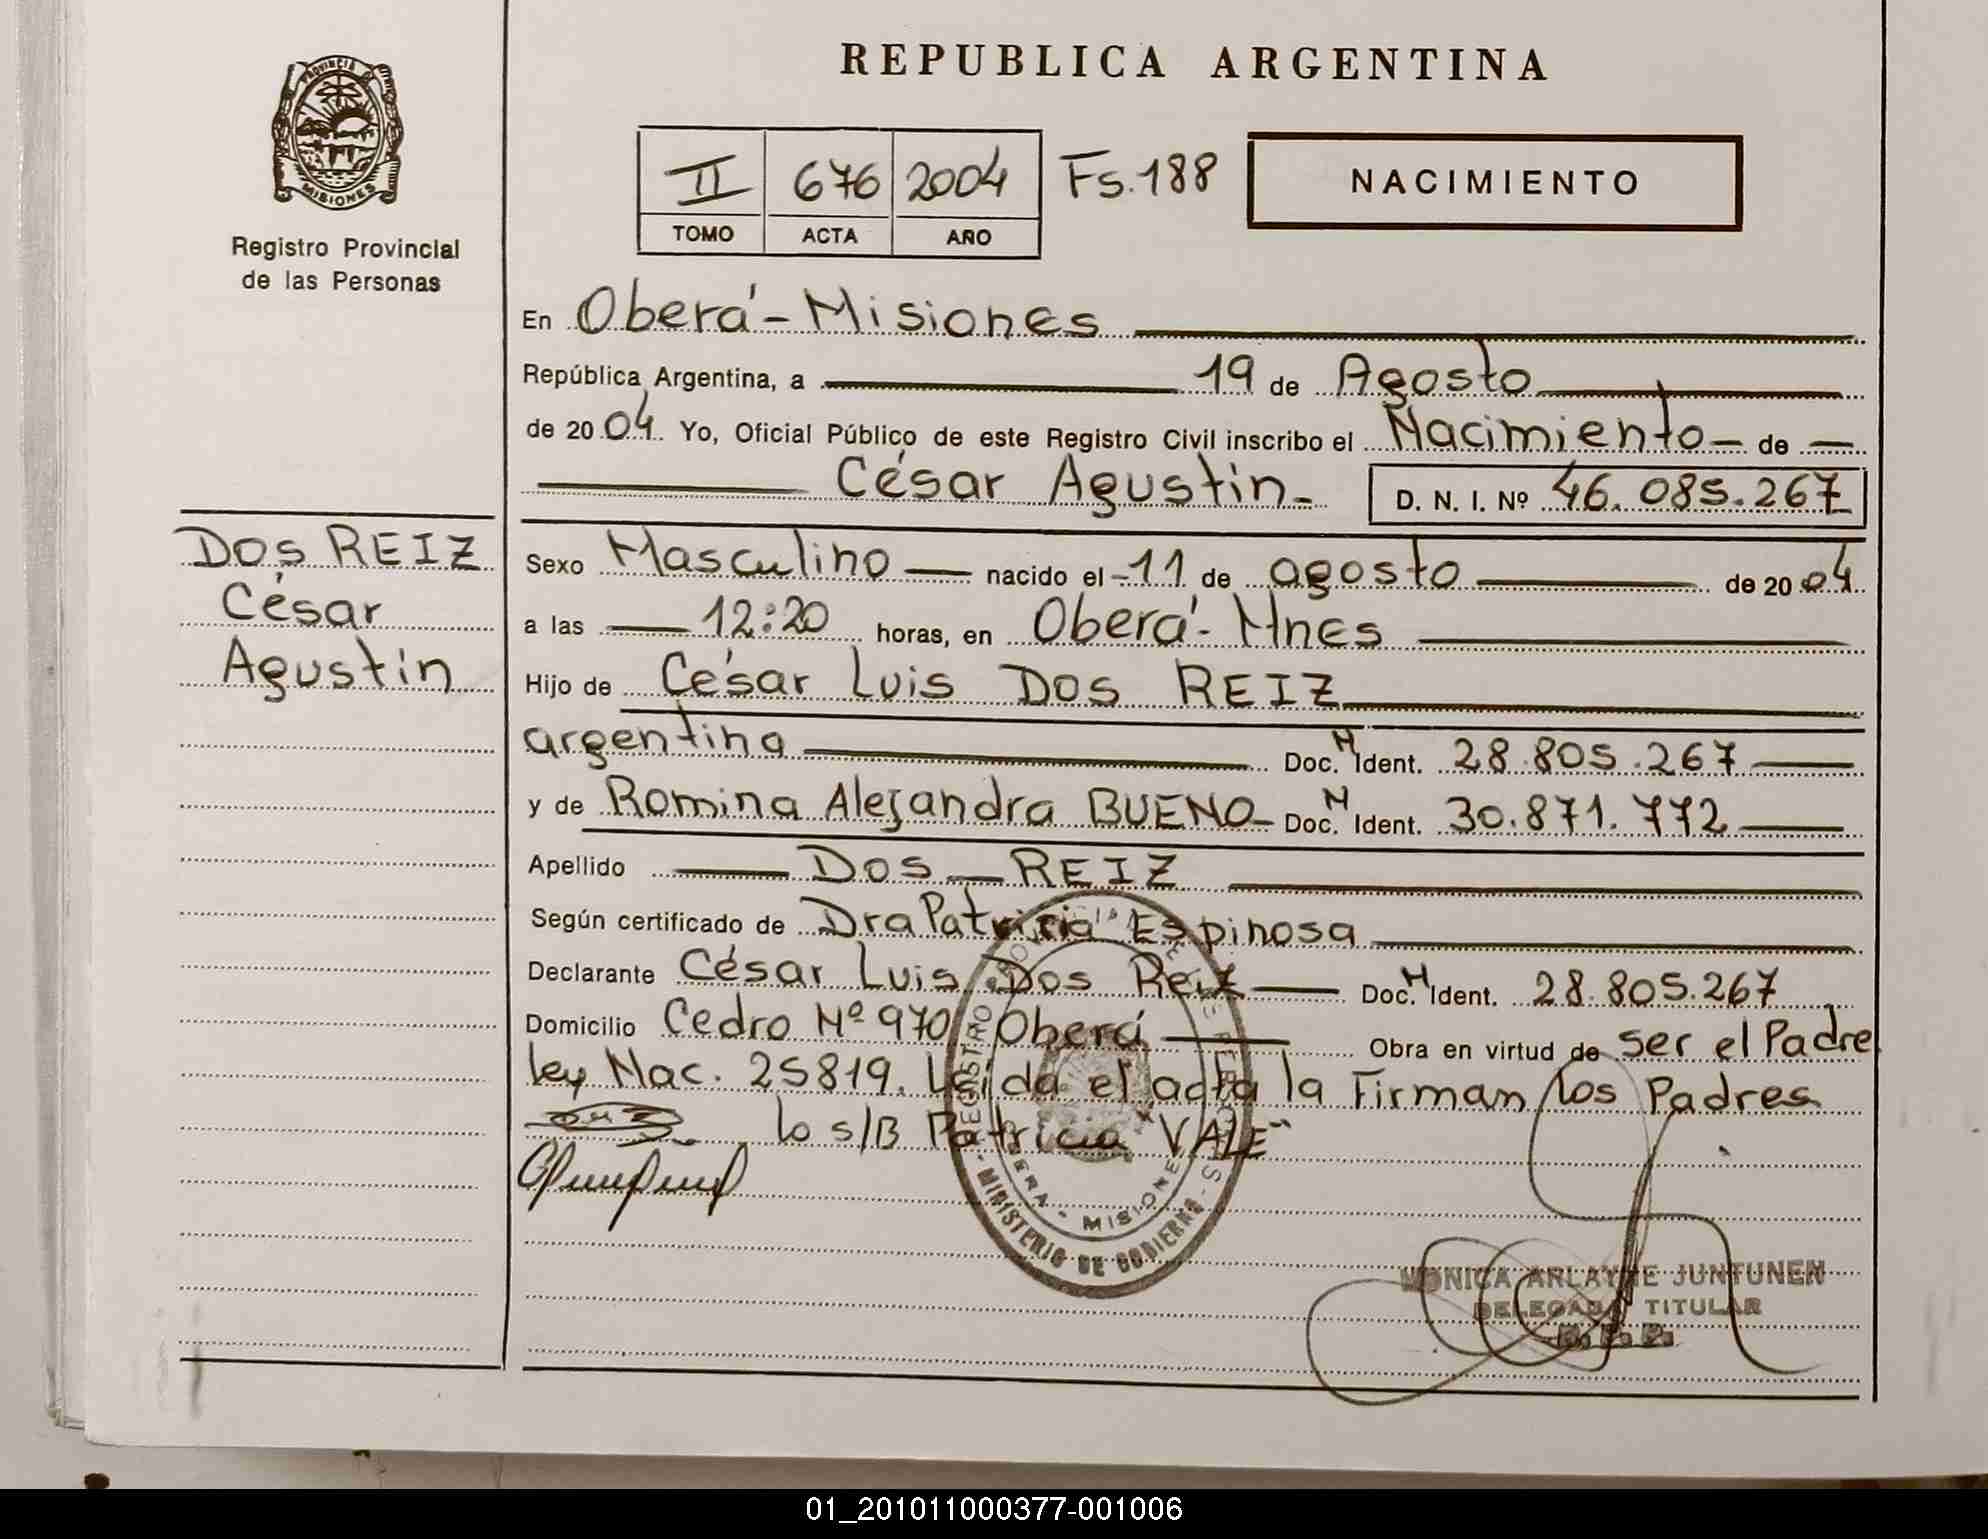 REPUBLICA ARGENTINA
PROVINCIA DE
MISIONES
Registro Provincial
de las Personas
II 676 2004 Fs.188
TOMO ACTA AÑO
NACIMIENTO
En Oberá - Misiones
República Argentina, a 19 de Agosto
de 2004. Yo, Oficial Público de este Registro Civil inscribo el Nacimiento - de
César Agustín - D. N. I. Nº 46.085.267
DOS REIZ
César
Agustín
Sexo Masculino nacido el - 11 de agosto de 2004
a las 12:20 horas, en Oberá - Mnes
Hijo de César Luis DOS REIZ
argentina Doc. N Ident. 28.805.267
y de Romina Alejandra BUENO Doc. N Ident. 30.871.772
Apellido DOS REIZ
Según certificado de Dra Patricia Espinosa
Declarante César Luis Dos Reiz Doc. N Ident. 28.805.267
Domicilio Cedro Nº 970 Oberá Obra en virtud de ser el Padre
ley Nac. 25819. Leída el acta la Firman los Padres
lo s/B Patricia "VALE"
MINISTERIO DE GOBIERNO
MISIONES
MONICA ARLAYNE JUNTUNEN
DELEGADA TITULAR
01_201011000377-001006